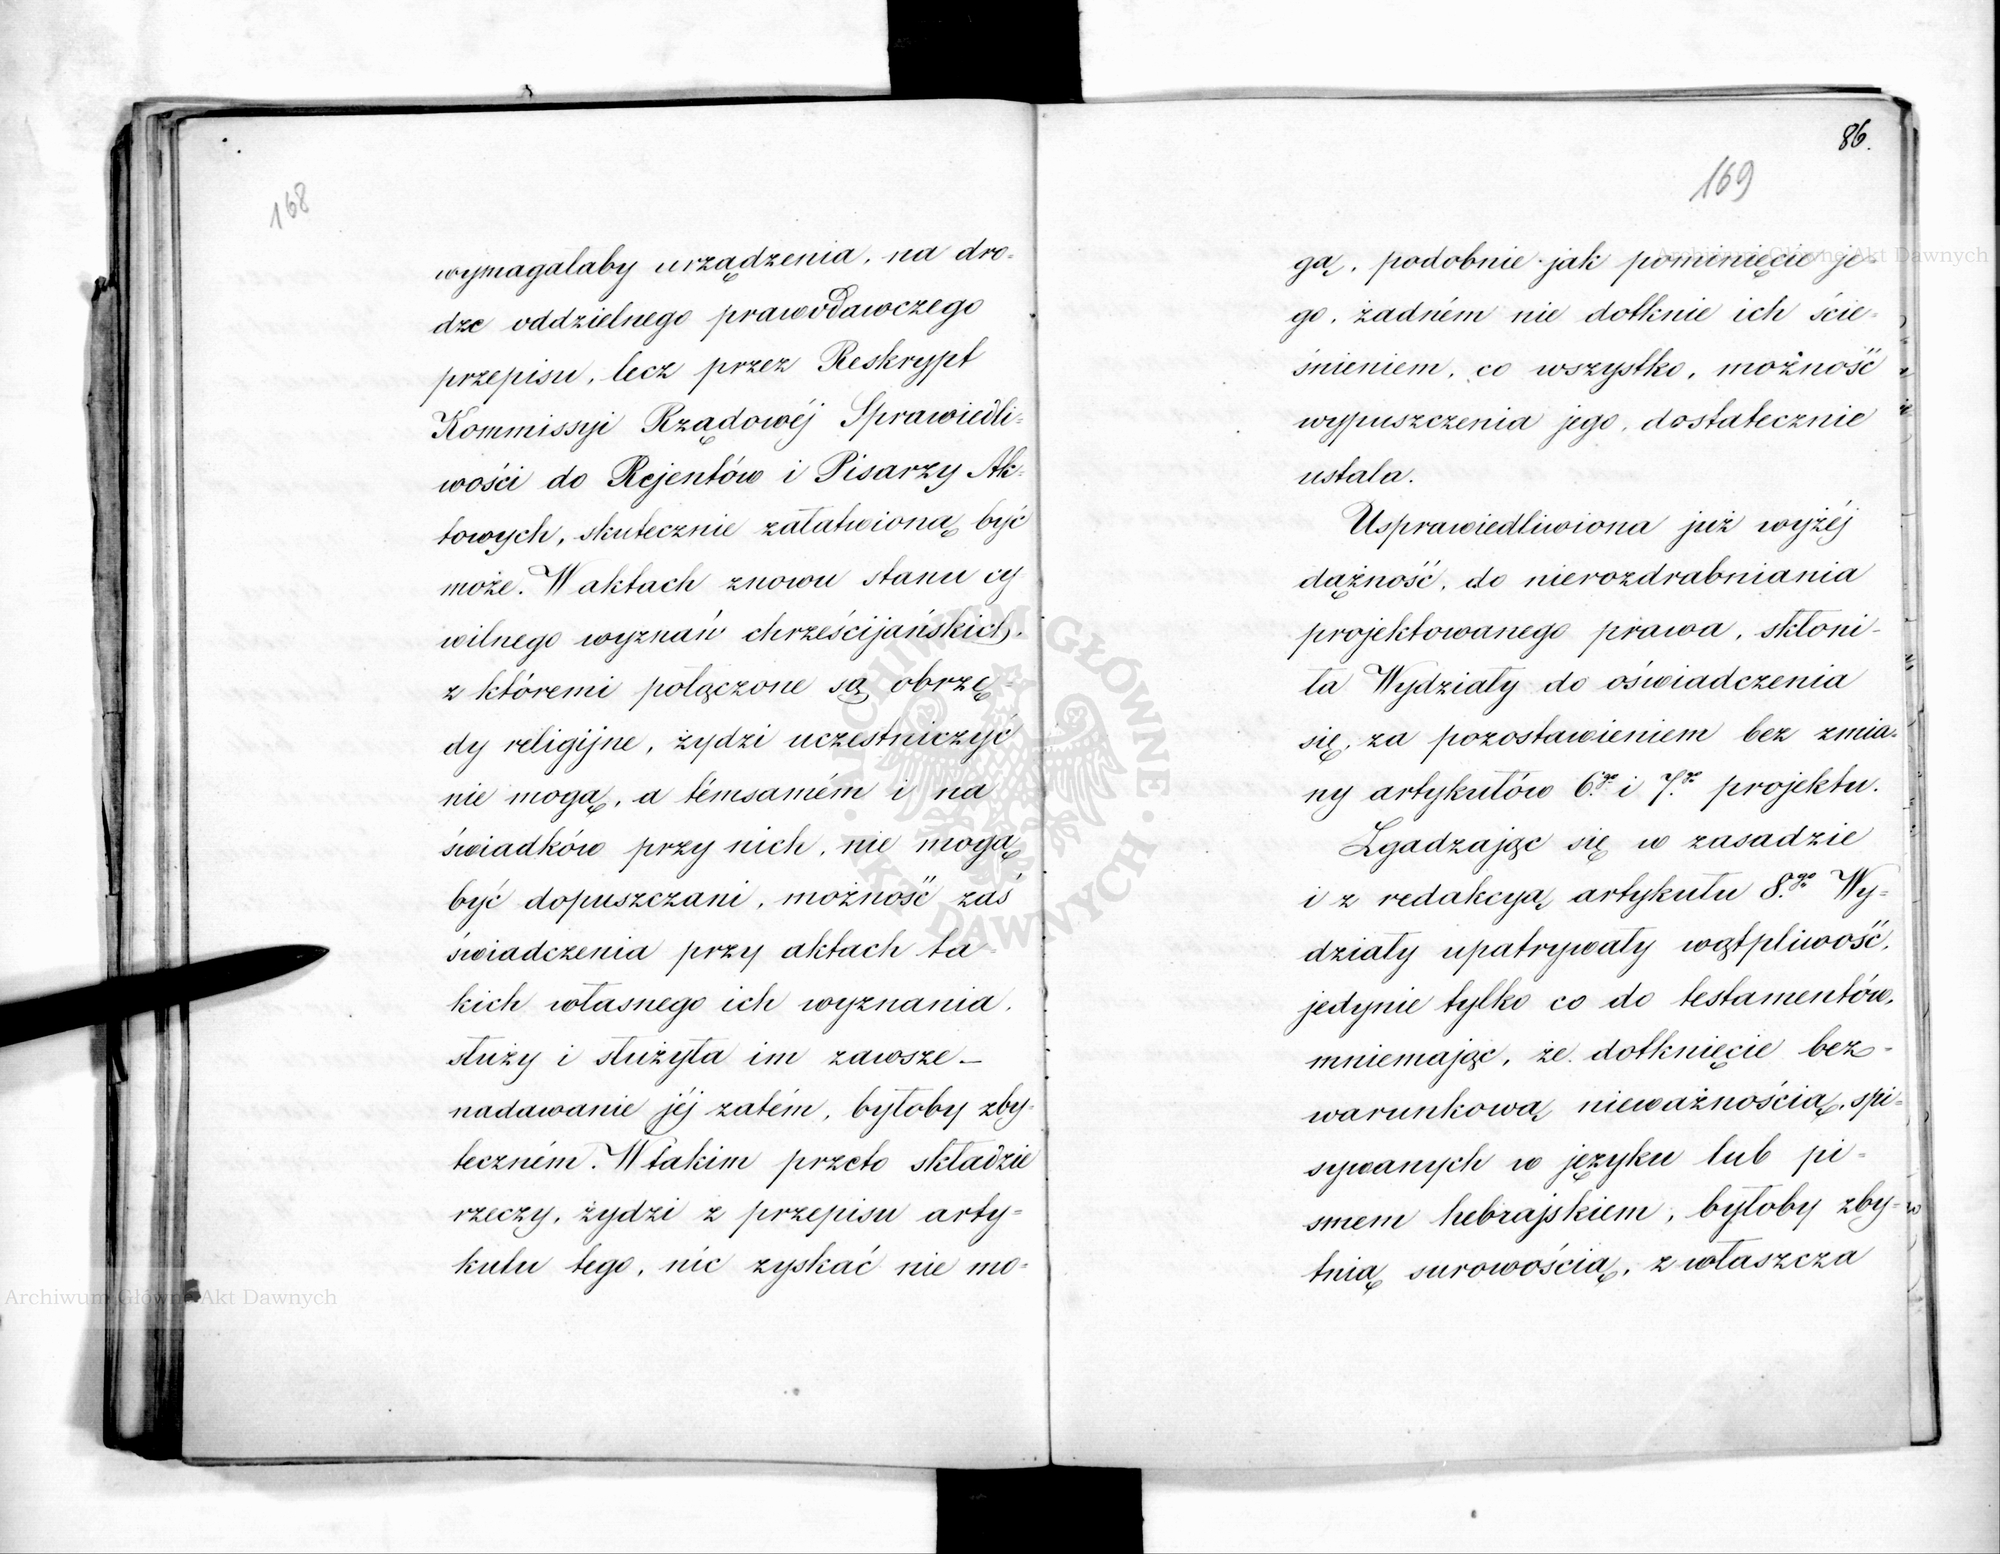 168
wymagałaby urządzenia, na dro-
dze oddzielnego prawodawczego
przepisu, lecz przez Reskrypt
Kommissyi Rządowéj Sprawiedli-
wości do Rejentów i Pisarzy Ak-
towych, skutecznie załatwioną być
może. W aktach znowu stanu cy
wilnego wyznań chrześcijańskich,
z któremi połączone są obrzę-
dy religijne, żydzi uczestniczyć
nie mogą, a témsamém i na
świadków przy nich, nie mogą
być dopuszczani, możność zaś
świadczenia przy aktach ta-
kich własnego ich wyznania,
służy i służyła im zawsze —
nadawanie jéj zatém, byłoby zby-
teczném. W takim przeto składzie
rzeczy, żydzi z przepisu arty-
kułu tego, nic zyskać nie mo-
86.
169
gą, podobnie jak pominięcie je-
go, żadném nie dotknie ich ście-
śnieniem, co wszystko, możność
wypuszczenia jego, dostatecznie
ustala.
Usprawiedliwiona już wyżéj
dążność, do nierozdrabniania
projektowanego prawa, skłoni-
ła Wydziały do oświadczenia
się, za pozostawieniem bez zmia-
ny artykułów 6.go i 7.go projektu.
Zgadzając się w zasadzie
i z redakcyą artykułu 8.go Wy-
działy upatrywały wątpliwość,
jedynie tylko co do testamentów,
mniemając, że dotknięcie bez-
warunkową nieważnością, spi-
sywanych w języku lub pi-
smem hebrajskiem, byłoby zby-
tnią surowością, zwłaszcza
Archiwum Główne Akt Dawnych
Archiwum Główne Akt Dawnych
ARCHIWUM GŁÓWNE · AKT DAWNYCH ·